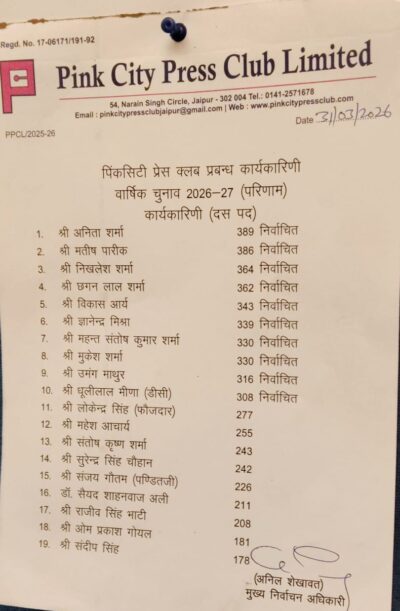 Regd. No. 17-06171/191-92
Pink City Press Club Limited
54, Narain Singh Circle, Jaipur - 302 004 Tel.: 0141-2571678
Email : pinkcitypressclubjaipur@gmail.com | Web : www.pinkcitypressclub.com
PPCL/2025-26
Date 31/03/2026
पिंकसिटी प्रेस क्लब प्रबन्ध कार्यकारिणी
वार्षिक चुनाव 2026–27 (परिणाम)
कार्यकारिणी (दस पद)
1. श्री अनिता शर्मा 389 निर्वाचित
2. श्री मतीष पारीक 386 निर्वाचित
3. श्री निखलेश शर्मा 364 निर्वाचित
4. श्री छगन लाल शर्मा 362 निर्वाचित
5. श्री विकास आर्य 343 निर्वाचित
6. श्री ज्ञानेन्द्र मिश्रा 339 निर्वाचित
7. श्री महन्त संतोष कुमार शर्मा 330 निर्वाचित
8. श्री मुकेश शर्मा 330 निर्वाचित
9. श्री उमंग माथुर 316 निर्वाचित
10. श्री धूलीलाल मीणा (डीसी) 308 निर्वाचित
11. श्री लोकेन्द्र सिंह (फौजदार) 277
12. श्री महेश आचार्य 255
13. श्री संतोष कृष्ण शर्मा 243
14. श्री सुरेन्द्र सिंह चौहान 242
15. श्री संजय गौतम (पण्डितजी) 226
16. डॉ. सैयद शाहनवाज अली 211
17. श्री राजीव सिंह भाटी 208
18. श्री ओम प्रकाश गोयल 181
19. श्री संदीप सिंह 178
(अनिल शेखावत)
मुख्य निर्वाचन अधिकारी